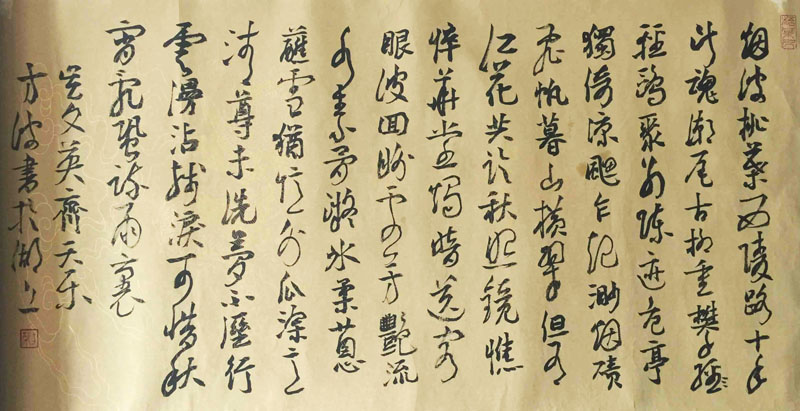 烟波桃葉西陵路十年
斷魂潮尾古柳重攀輕
輕鷗聚別陳迹危亭
獨倚涼颸乍起渺烟磧
飛帆暮山橫翠但有
江花共臨秋照鏡憔
悴華堂燭暗送客
眼波回盼處芳豔流
水素骨凝冰柔蔥
蘸雪猶憶分瓜深意
清尊未洗夢不溼行
雲漫沾殘淚可惜秋
宵亂蛩疏雨裏
吳文英齊天樂
方波書於湖上